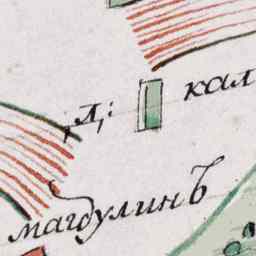 ,д,: кал
магдулинъ